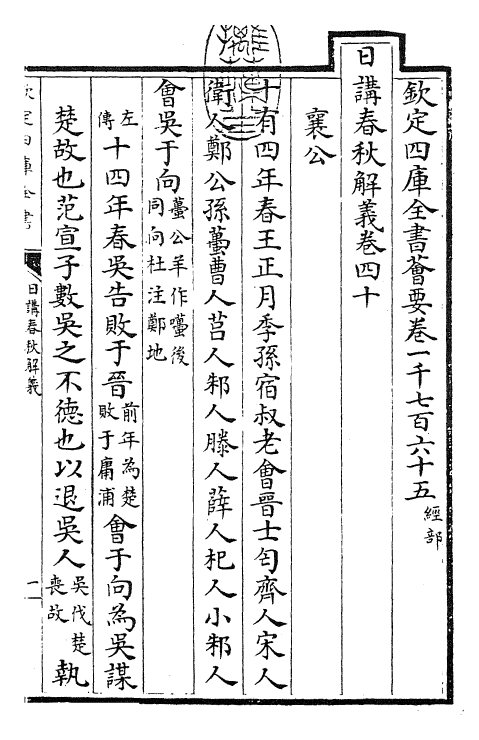 欽定四庫全書薈要卷一千七百六十五 經部
日講春秋解義卷四十
襄公
十有四年春王正月季孫宿叔老會晉士匄齊人宋人
衛人鄭公孫蠆曹人莒人邾人滕人薛人杞人小邾人
會吳于向蠆公羊作囆後同向杜注鄭地
左傳十四年春吳告敗于晉前年為楚敗于庸浦會于向為吳謀
楚故也范宣子數吳之不德也以退吳人吳伐楚喪故執
欽定四庫全書
日講春秋解義
一